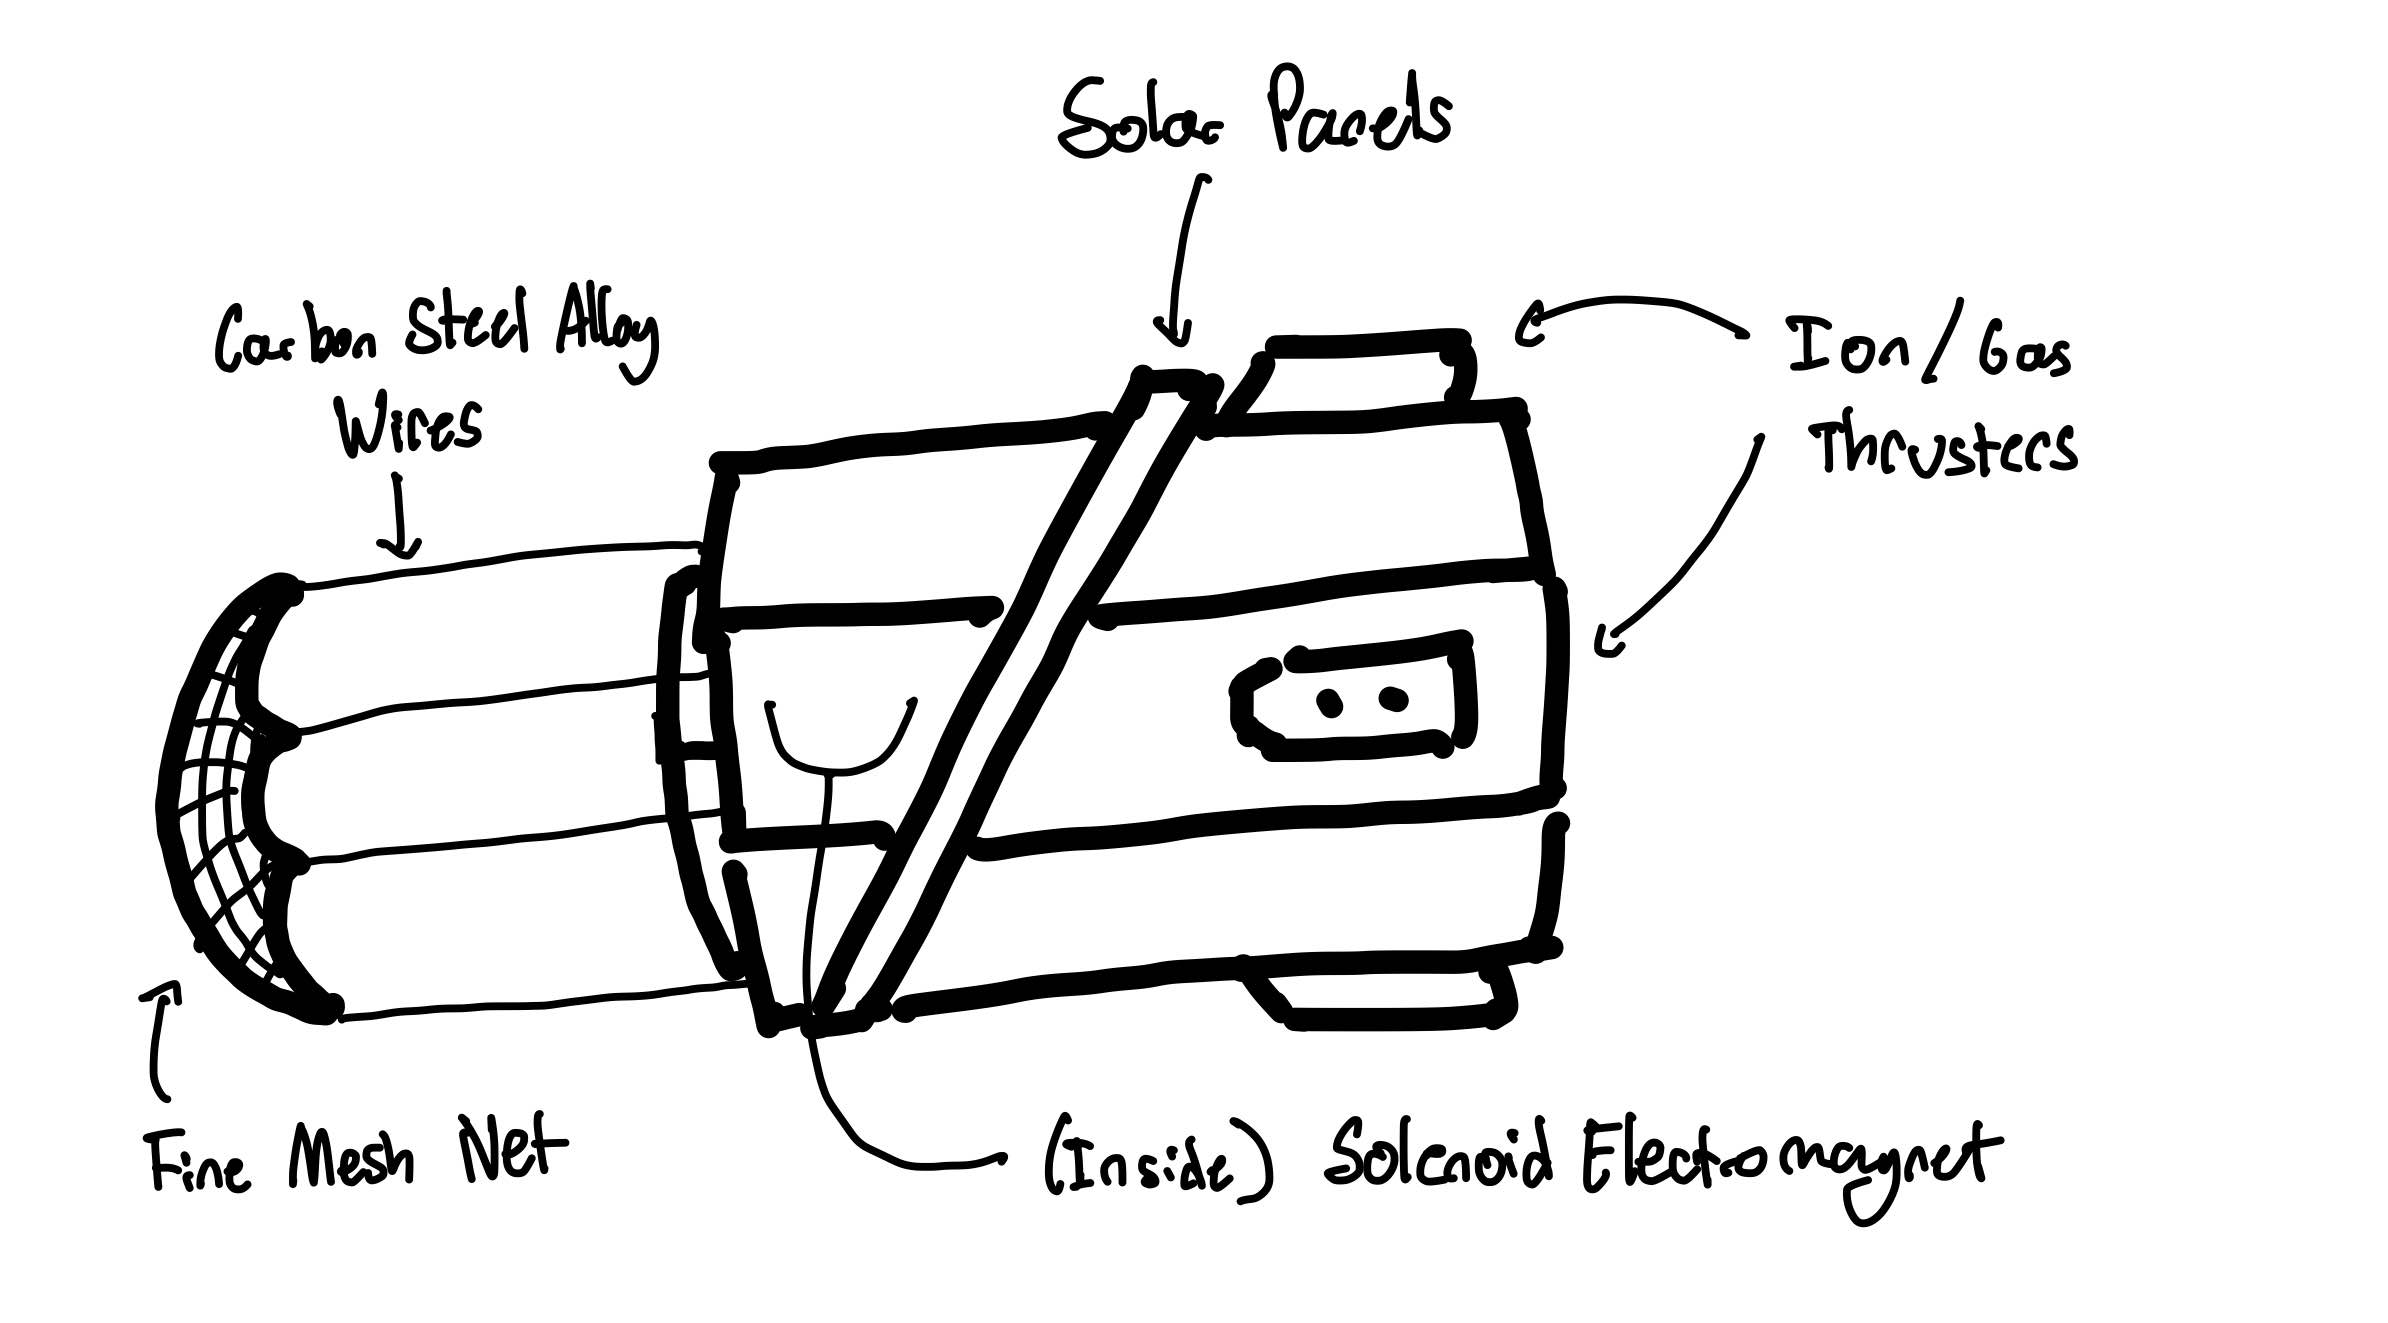 Solar Panels
Carbon Steel Alloy
Wires
Ion/Gas
Thrusters
Fine Mesh Net
(Inside) Solenoid Electromagnet